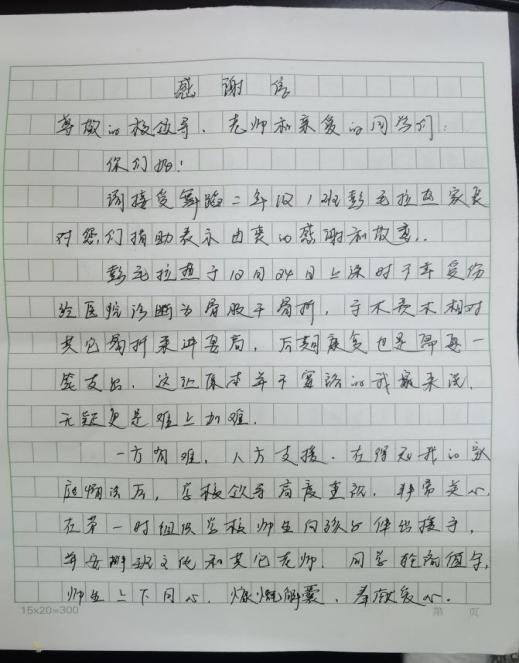 感谢信
尊敬的校领导、老师和亲爱的同学们:
你们好!
请接受舞蹈二年级1班彭毛拉热家长
对您们捐助表示由衷的感谢和敬意..
彭毛拉热于10月24日上课时下车受伤
经医院诊断为骨股干骨折,手术费术相对
其它骨折来讲要高,后期康复也是需要一
笔支出,这让原本并不富裕的我家来说,
无疑更是难上加难.
一方有难,八方支援.在得知我的家
庭情况后,学校领导高度重视,非常关心,
在第一时组织学校师生向孩子伸出援手,
并安排班文化和其它老师、同学轮流值守,
师生上下同心,慷慨解囊,奉献爱心.
15x20=300
第 页